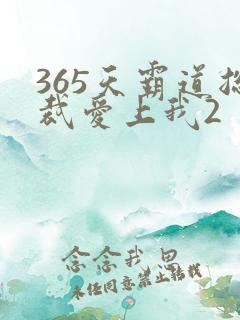 365天霸道总
裁爱上我2
念念我思
未经同意禁止转载